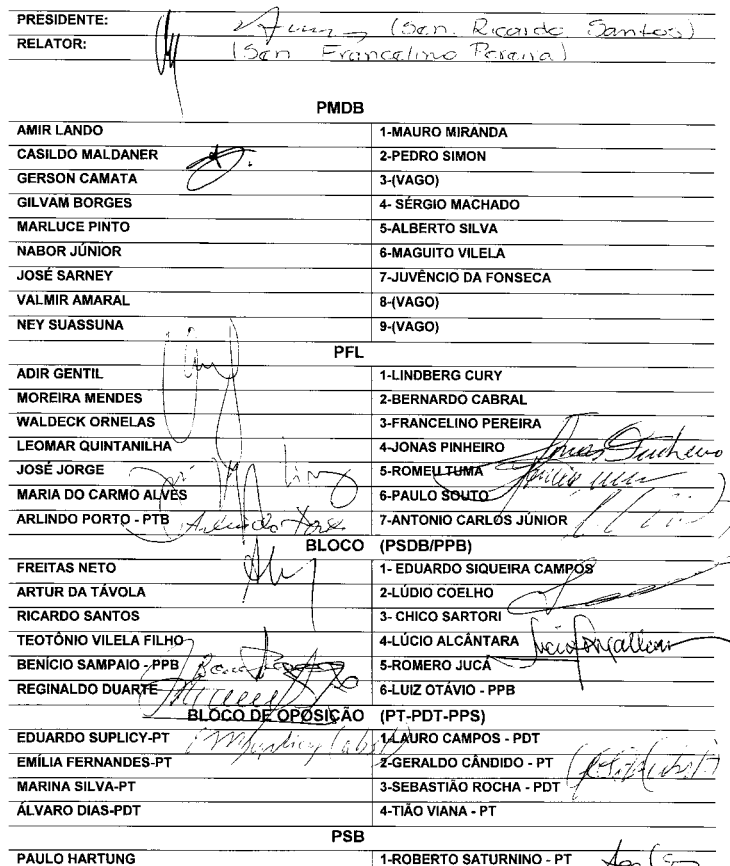 PRESIDENTE: (Sen. Ricardo Santos)
RELATOR: (Sen Francelino Pereira)
PMDB
AMIR LANDO 1-MAURO MIRANDA
CASILDO MALDANER 2-PEDRO SIMON
GERSON CAMATA 3-(VAGO)
GILVAM BORGES 4- SÉRGIO MACHADO
MARLUCE PINTO 5-ALBERTO SILVA
NABOR JÚNIOR 6-MAGUITO VILELA
JOSÉ SARNEY 7-JUVÊNCIO DA FONSECA
VALMIR AMARAL 8-(VAGO)
NEY SUASSUNA 9-(VAGO)
PFL
ADIR GENTIL 1-LINDBERG CURY
MOREIRA MENDES 2-BERNARDO CABRAL
WALDECK ORNELAS 3-FRANCELINO PEREIRA
LEOMAR QUINTANILHA 4-JONAS PINHEIRO Jonas Pinheiro
JOSÉ JORGE 5-ROMEU TUMA
MARIA DO CARMO ALVES 6-PAULO SOUTO
ARLINDO PORTO - PTB Arlindo Porto 7-ANTONIO CARLOS JÚNIOR
BLOCO (PSDB/PPB)
FREITAS NETO 1- EDUARDO SIQUEIRA CAMPOS
ARTUR DA TÁVOLA 2-LÚDIO COELHO
RICARDO SANTOS 3- CHICO SARTORI
TEOTÔNIO VILELA FILHO 4-LÚCIO ALCÂNTARA
BENÍCIO SAMPAIO - PPB 5-ROMERO JUCÁ
REGINALDO DUARTE 6-LUIZ OTÁVIO - PPB
BLOCO DE OPOSIÇÃO (PT-PDT-PPS)
EDUARDO SUPLICY-PT 1-LAURO CAMPOS - PDT
EMÍLIA FERNANDES-PT 2-GERALDO CÂNDIDO - PT
MARINA SILVA-PT 3-SEBASTIÃO ROCHA - PDT
ÁLVARO DIAS-PDT 4-TIÃO VIANA - PT
PSB
PAULO HARTUNG 1-ROBERTO SATURNINO - PT